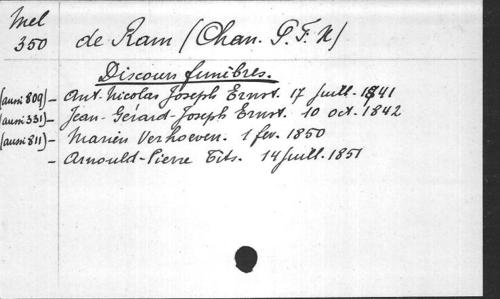 Mel
350
de Ram (Chan. P. F. X)
Discours funèbres.
(aussi 809) - Ant. Nicolas Joseph Ernst. 17 juill. 1841
(aussi 331) - Jean-Gérard-Joseph Ernst. 10 oct. 1842
(aussi 811) - Marien Verhoeven. 1 fev. 1850
- Arnould-Pierre Tits. 14 juill. 1851